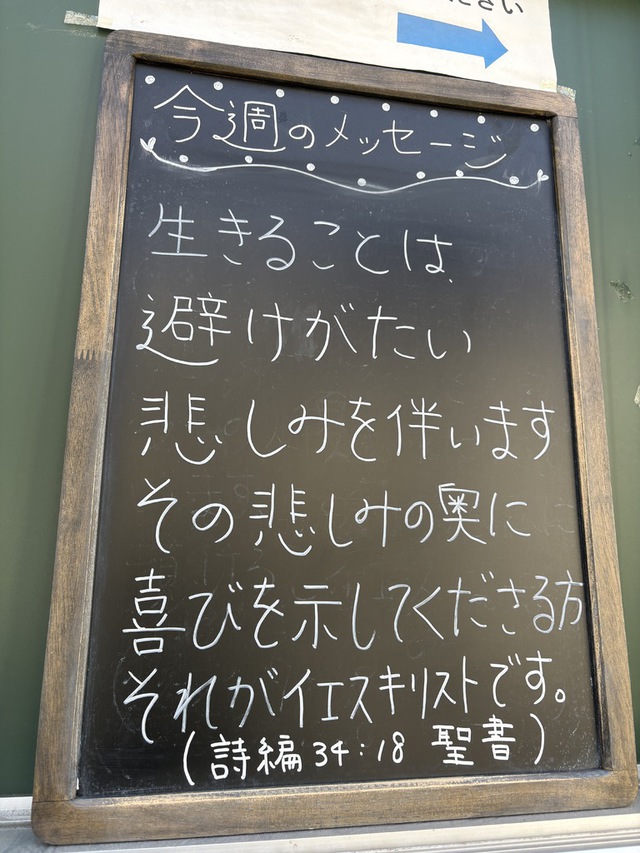 ください
今週のメッセージ
生きることは
避けがたい
悲しみを伴います
その悲しみの奥に
喜びを示してくださる方
それがイエスキリストです。
(詩編34:18 聖書)